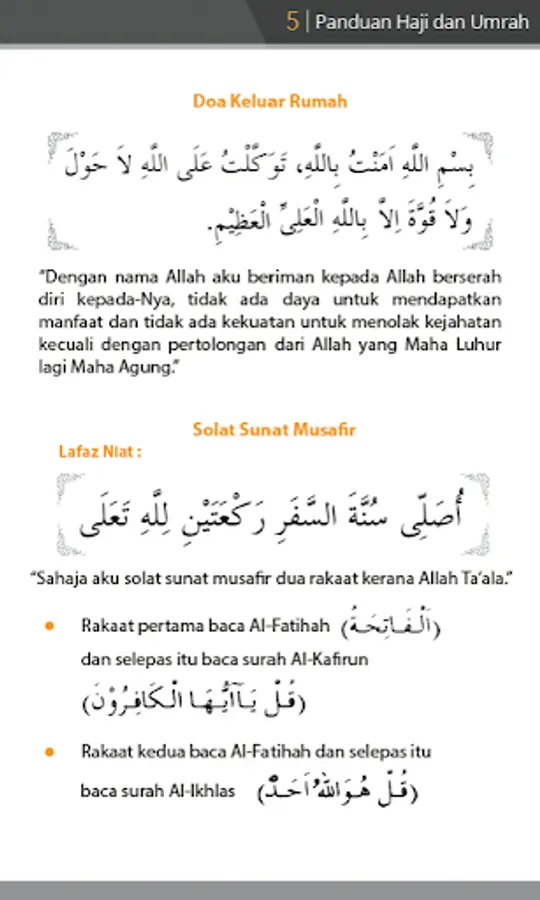 5 | Panduan Haji dan Umrah
Doa Keluar Rumah
بِسْمِ اللَّهِ اَمَنْتُ بِاللَّهِ، تَوَكَّلْتُ عَلَى اللَّهِ لاَ حَوْلَ
وَلاَ قُوَّةَ اِلاَّ بِاللَّهِ الْعَلِىِّ الْعَظِيْمِ.
“Dengan nama Allah aku beriman kepada Allah berserah
diri kepada-Nya, tidak ada daya untuk mendapatkan
manfaat dan tidak ada kekuatan untuk menolak kejahatan
kecuali dengan pertolongan dari Allah yang Maha Luhur
lagi Maha Agung.”
Solat Sunat Musafir
Lafaz Niat :
أُصَلِّى سُنَّةَ السَّفَرِ رَكْعَتَيْنِ لِلَّهِ تَعَلَى
“Sahaja aku solat sunat musafir dua rakaat kerana Allah Ta’ala.”
• Rakaat pertama baca Al-Fatihah (اَلْفَاتِحَةُ)
dan selepas itu baca surah Al-Kafirun
(قُلْ يَآاَيُّهَا الْكَافِرُوْنَ)
• Rakaat kedua baca Al-Fatihah dan selepas itu
baca surah Al-Ikhlas (قُلْ هُوَ اللهُ اَحَدٌ)